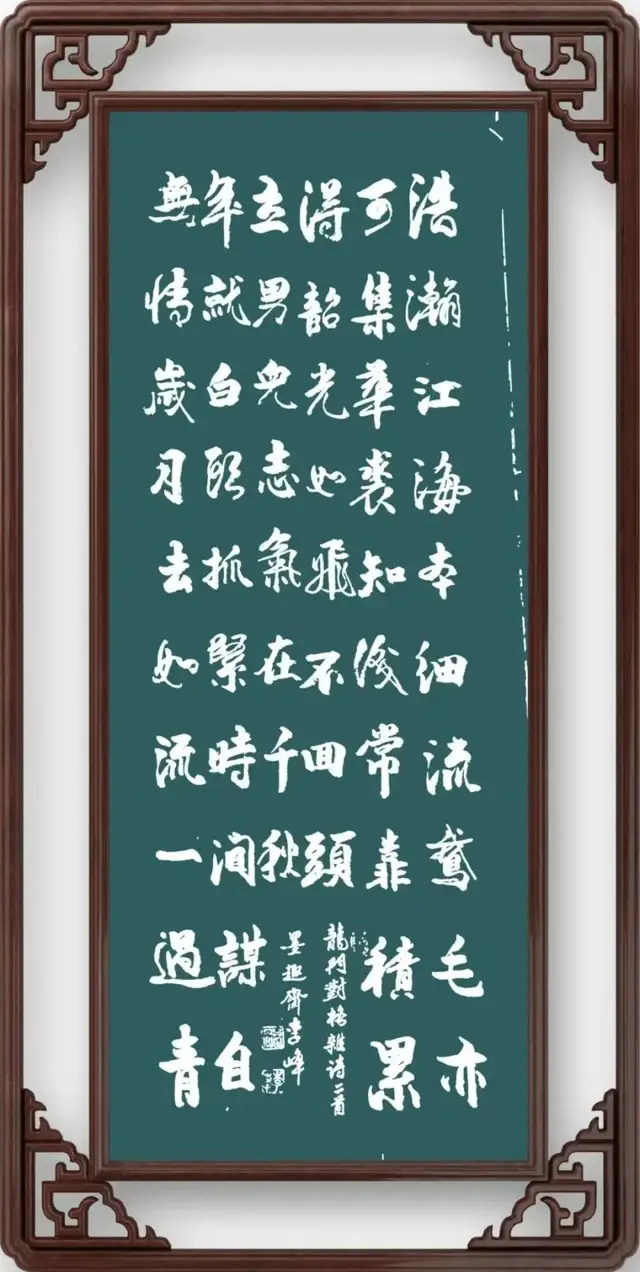 浩瀚江海本細流鵞毛亦
可集華裘知淺常靠積累
得韶光如飛不回頭
龍門對格雜诗二首
無情歲月去如流一過青
年就白頭抓緊時間謀自
立男兒志氣在千秋
墨趣齋李峰